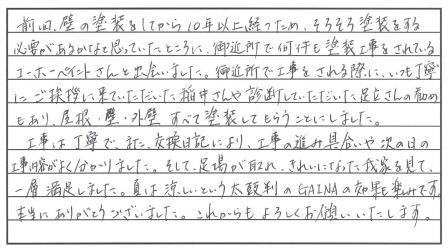 前回、壁の塗装をしてから10年以上経ったため、そろそろ塗装をする
必要があるかなと思っていたところに、御近所で何件も塗装工事をされている
ユーホーペイントさんと出会いました。御近所で工事をされる際に、いつも丁寧
にご挨拶に来ていただいた稲井さんや診断していただいた足立さんの勧め
もあり、屋根・壁・外壁すべて塗装してもらうことにしました。
工事は丁寧で、また、交換日記により、工事の進み具合いや次の日の
工事内容がよく分かりました。そして、足場が取れ、きれいになった我家を見て、
一層満足しました。夏は涼しいという太鼓判のGAINAの効果も楽みです。
本当にありがとうございました。これからもよろしくお願いいたします。